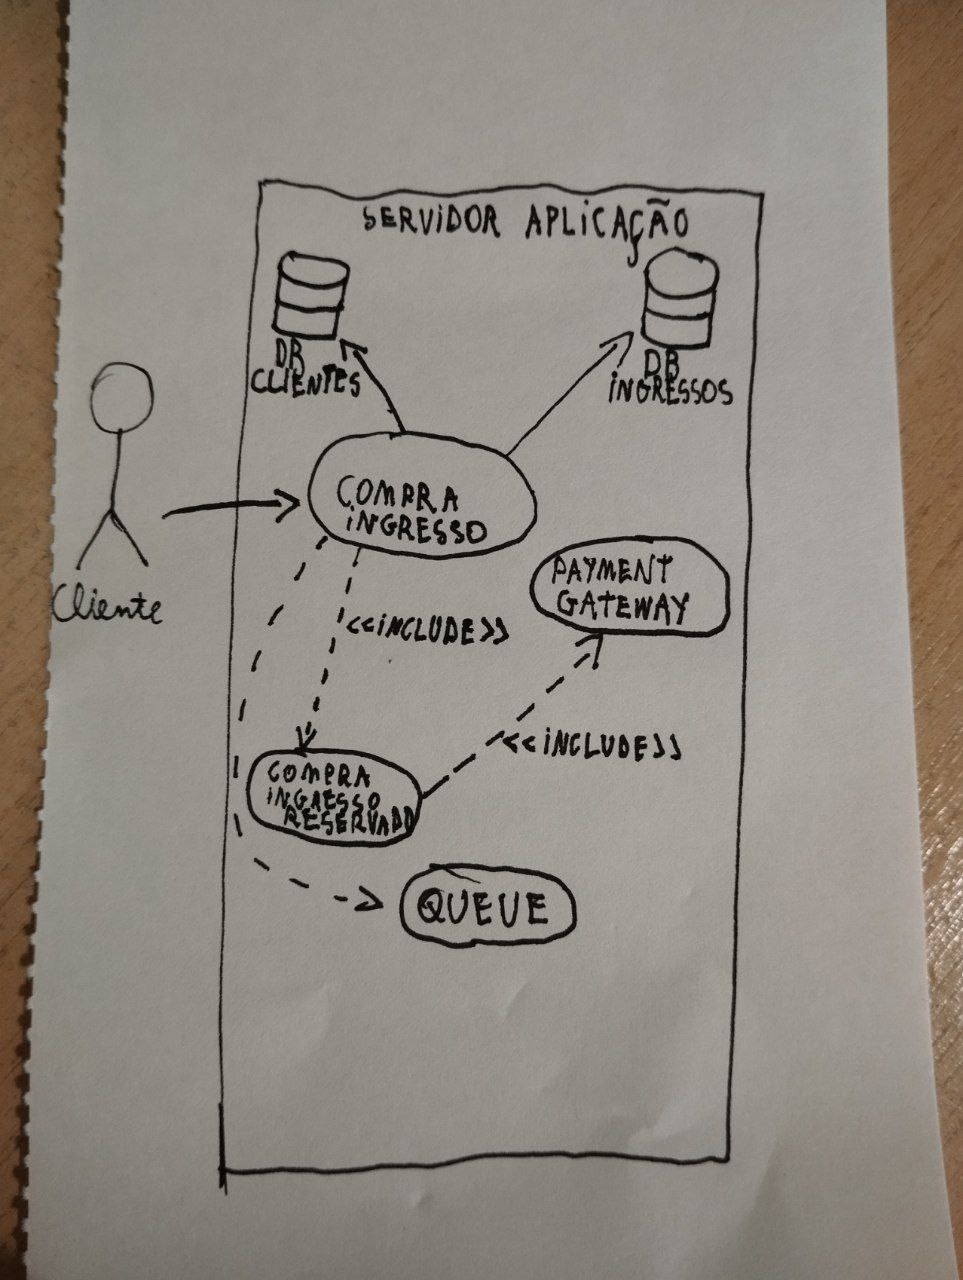 SERVIDOR APLICAÇÃO
DB
CLIENTES
DB
INGRESSOS
COMPRA
INGRESSO
Cliente
PAYMENT
GATEWAY
<<INCLUDE>>
<<INCLUDE>>
COMPRA
INGRESSO
RESERVADO
QUEUE